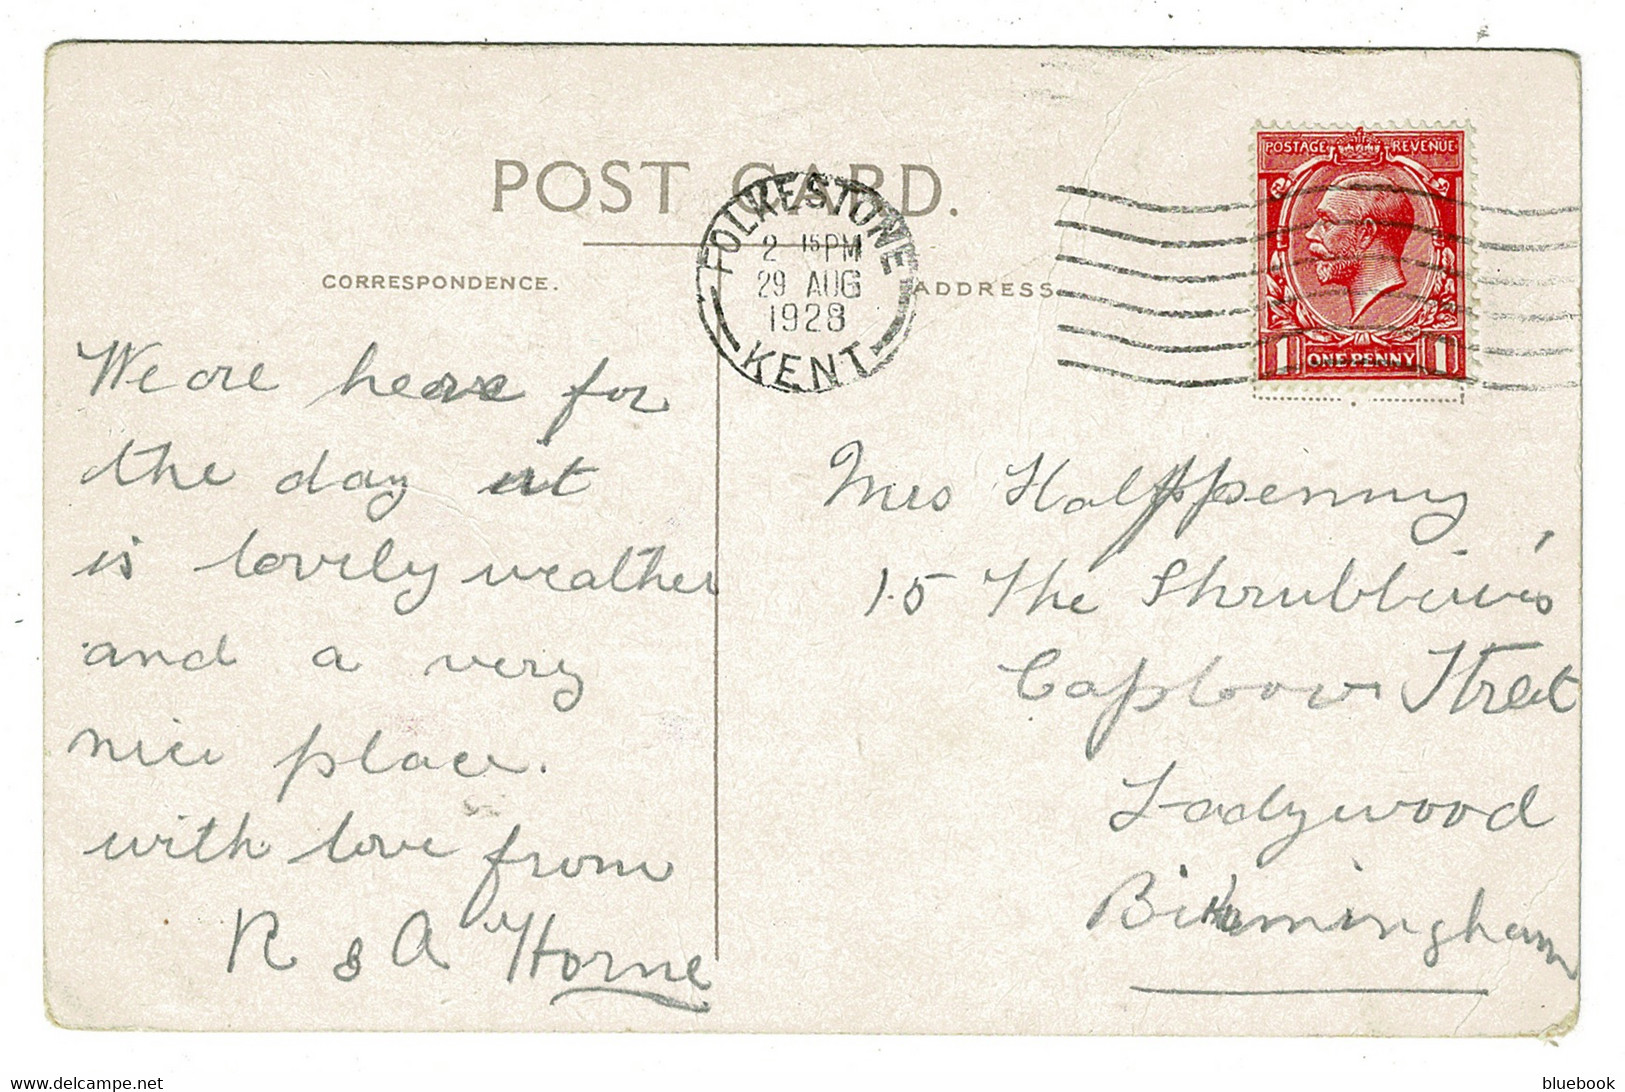 POST CARD.
CORRESPONDENCE.
ADDRESS
FOLKESTONE
2 15 PM
29 AUG
1928
KENT
POSTAGE REVENUE
1 ONE PENNY 1
We are here for
the day it
is lovely weather
and a very
nice place.
with love from
R & A Horne
Mrs Halfpenny,
15 The
Street
Ladywood
Birmingham
www.delcampe.net
bluebook